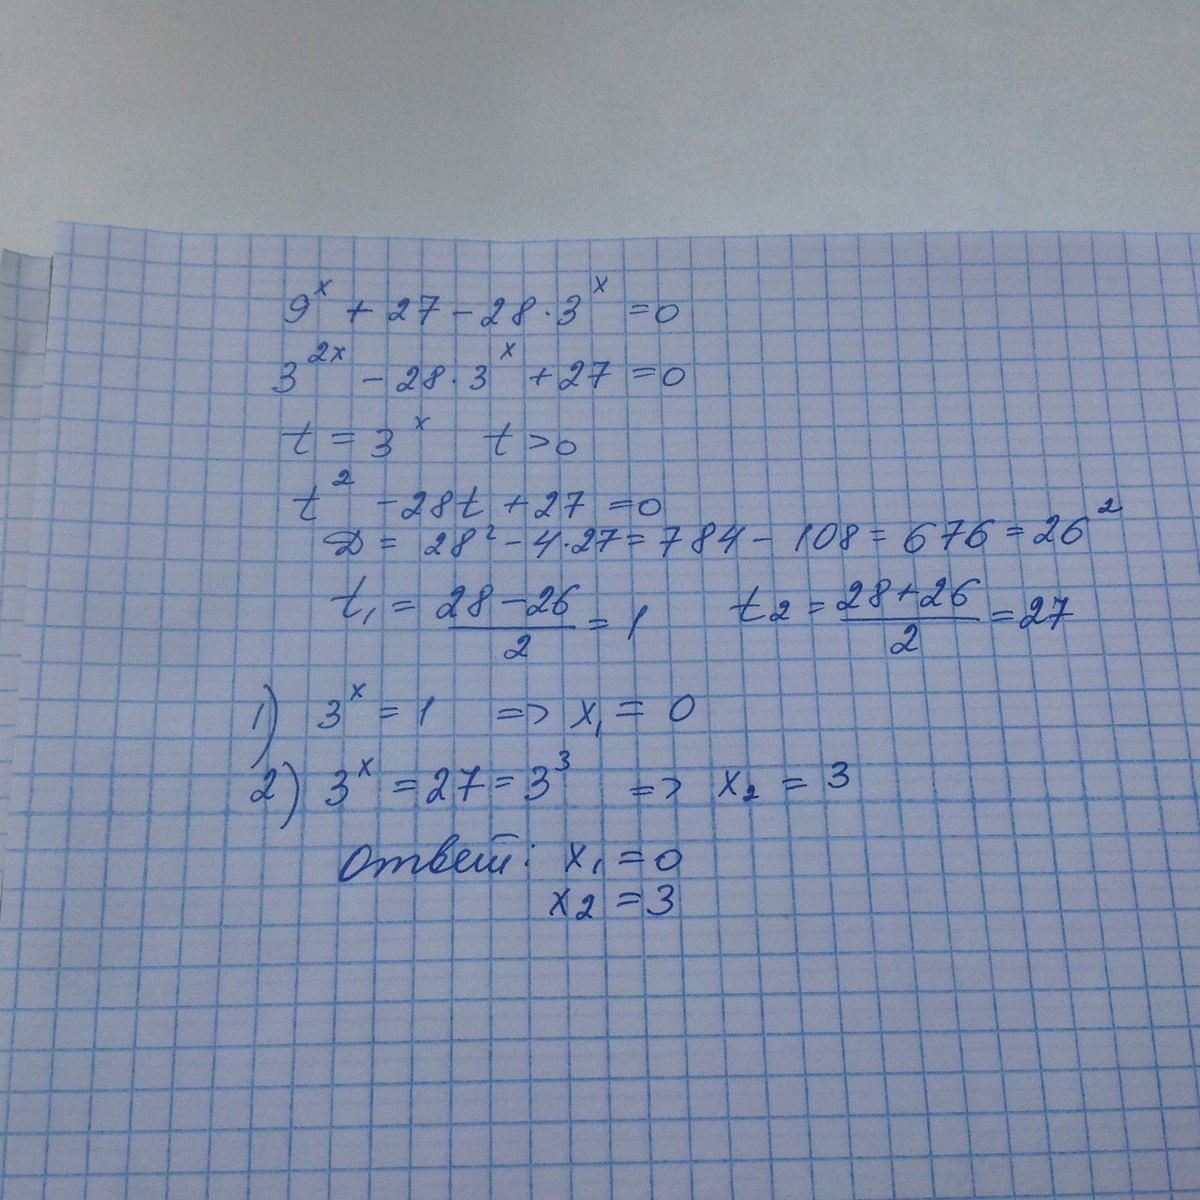 9ˣ + 27 - 28 · 3ˣ = 0
3²ˣ - 28 · 3ˣ + 27 = 0
t = 3ˣ t > 0
t² - 28t + 27 = 0
D = 28² - 4·27 = 784 - 108 = 676 = 26²
t₁ = (28 - 26)/2 = 1 t₂ = (28 + 26)/2 = 27
1) 3ˣ = 1 => x₁ = 0
2) 3ˣ = 27 = 3³ => x₂ = 3
Ответ: x₁ = 0
x₂ = 3